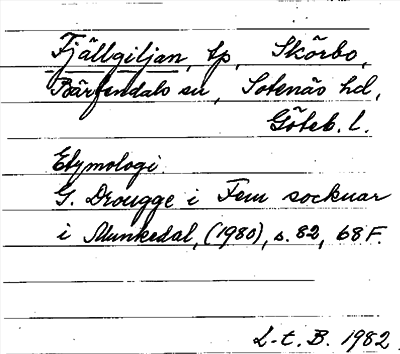 Fjällgiljan, tp, Skörbo,
Bärfendals sn, Sotenäs hd,
Göteb. l.
Etymologi
G. Drougge i Fem socknar
i Munkedal, (1980), s. 82, 68 F.
L-t. B. 1982